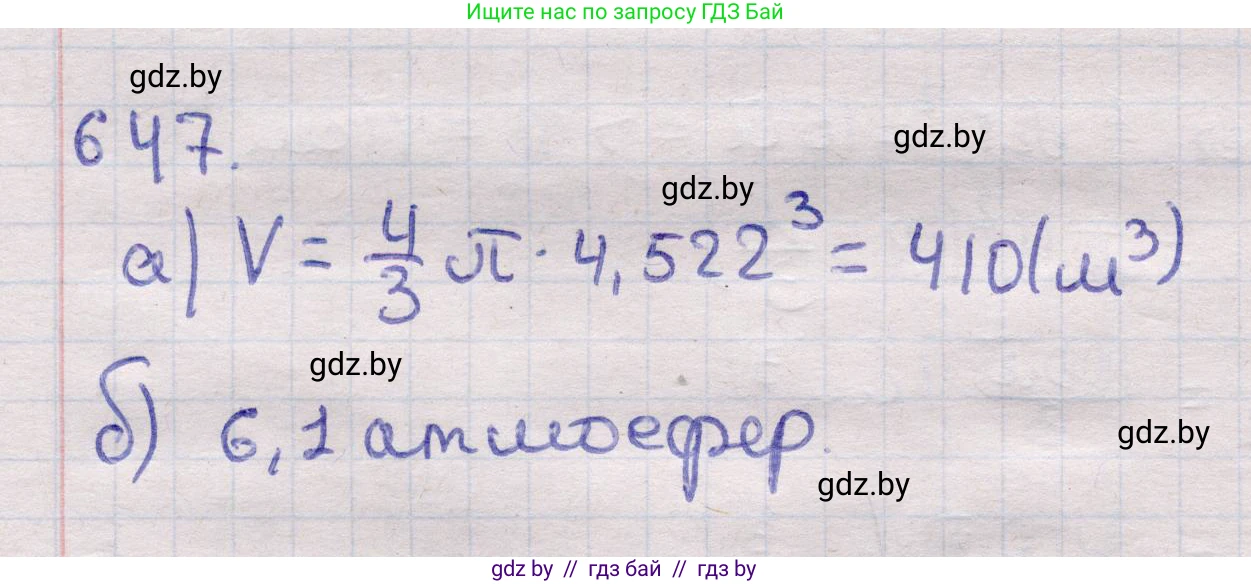 Ищите нас по запросу ГДЗ Бай
gdz.by
647.
gdz.by
gdz.by
а) V = 4/3 π · 4,522³ = 410(м³)
gdz.by
б) 6,1 атмосфер.
gdz.by
gdz.by
gdz by // гдз бай // гдз by